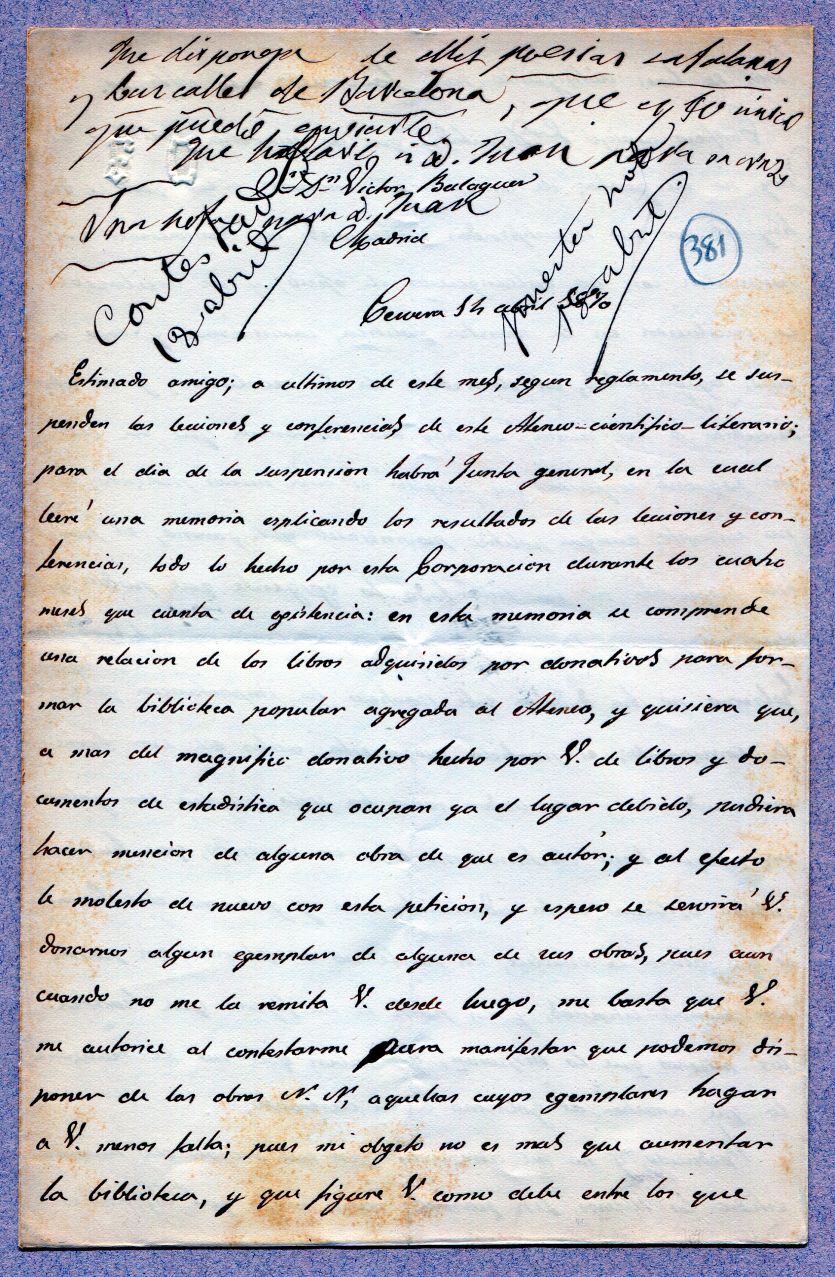 Que disponga de Mis poesias catalanas
y Las calles de Barcelona, que es lo único
que puedo enviarle
que hablaré á D. Juan
Sr. Dn Victor Balaguer
Una nota para D. Juan
Madrid
Contestada
18 abril
381
Cervera 14 abril 1870
18 abril
Estimado amigo; a ultimos de este mes, segun reglamento, se sus-
penden las lecciones y conferencias, de este Ateneo-cientifico-literario;
para el dia de la suspension habrá Junta general, en la cual
leeré una memoria esplicando los resultados de las lecciones y con-
ferencias, todo lo hecho por esta Corporacion durante los cuatro
meses que cuenta de existencia: en esta memoria se comprende
una relacion de los libros adquiridos por donativos para for-
mar la biblioteca popular agregada al Ateneo, y quisiera que,
a mas del magnifico donativo hecho por V. de libros y do-
cumentos de estadística que ocupan ya el lugar debido, pudiera
hacer mencion de alguna obra de que es autor; y al efecto
le molesto de nuevo con esta peticion, y espero se servirá V.
donarnos algun egemplar de alguna de sus obras, pues aun
cuando no me la remita V. desde luego, me basta que V.
me autorice al contestarme para manifestar que podemos dis-
poner de las obras N. N, aquellas cuyos egemplares hagan
a V. menos falta; pues mi obgeto no es mas que aumentar
la biblioteca, y que figure V. como debe entre los que